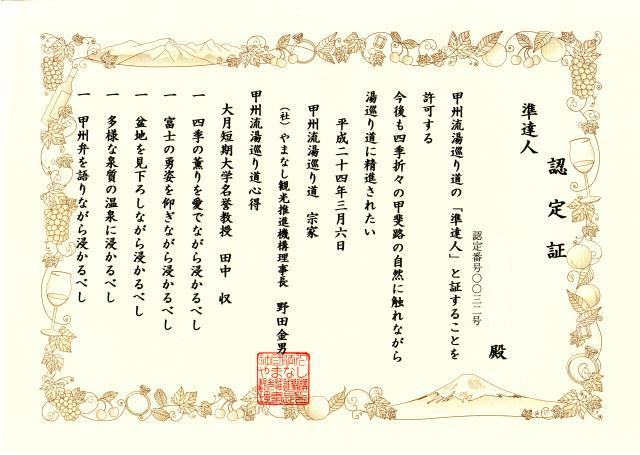 認定証
準達人
殿
認定番号〇〇三二号
甲州流湯巡り道の「準達人」と証することを
許可する
今後も四季折々の甲斐路の自然に触れながら
湯巡り道に精進されたい
平成二十四年三月六日
甲州流湯巡り道 宗家
(社)やまなし観光推進機構理事長 野田金男
甲州流湯巡り道心得
大月短期大学名誉教授 田中 収
一 四季の薫りを愛でながら浸かるべし
一 富士の勇姿を仰ぎながら浸かるべし
一 盆地を見下ろしながら浸かるべし
一 多様な泉質の温泉に浸かるべし
一 甲州弁を語りながら浸かるべし